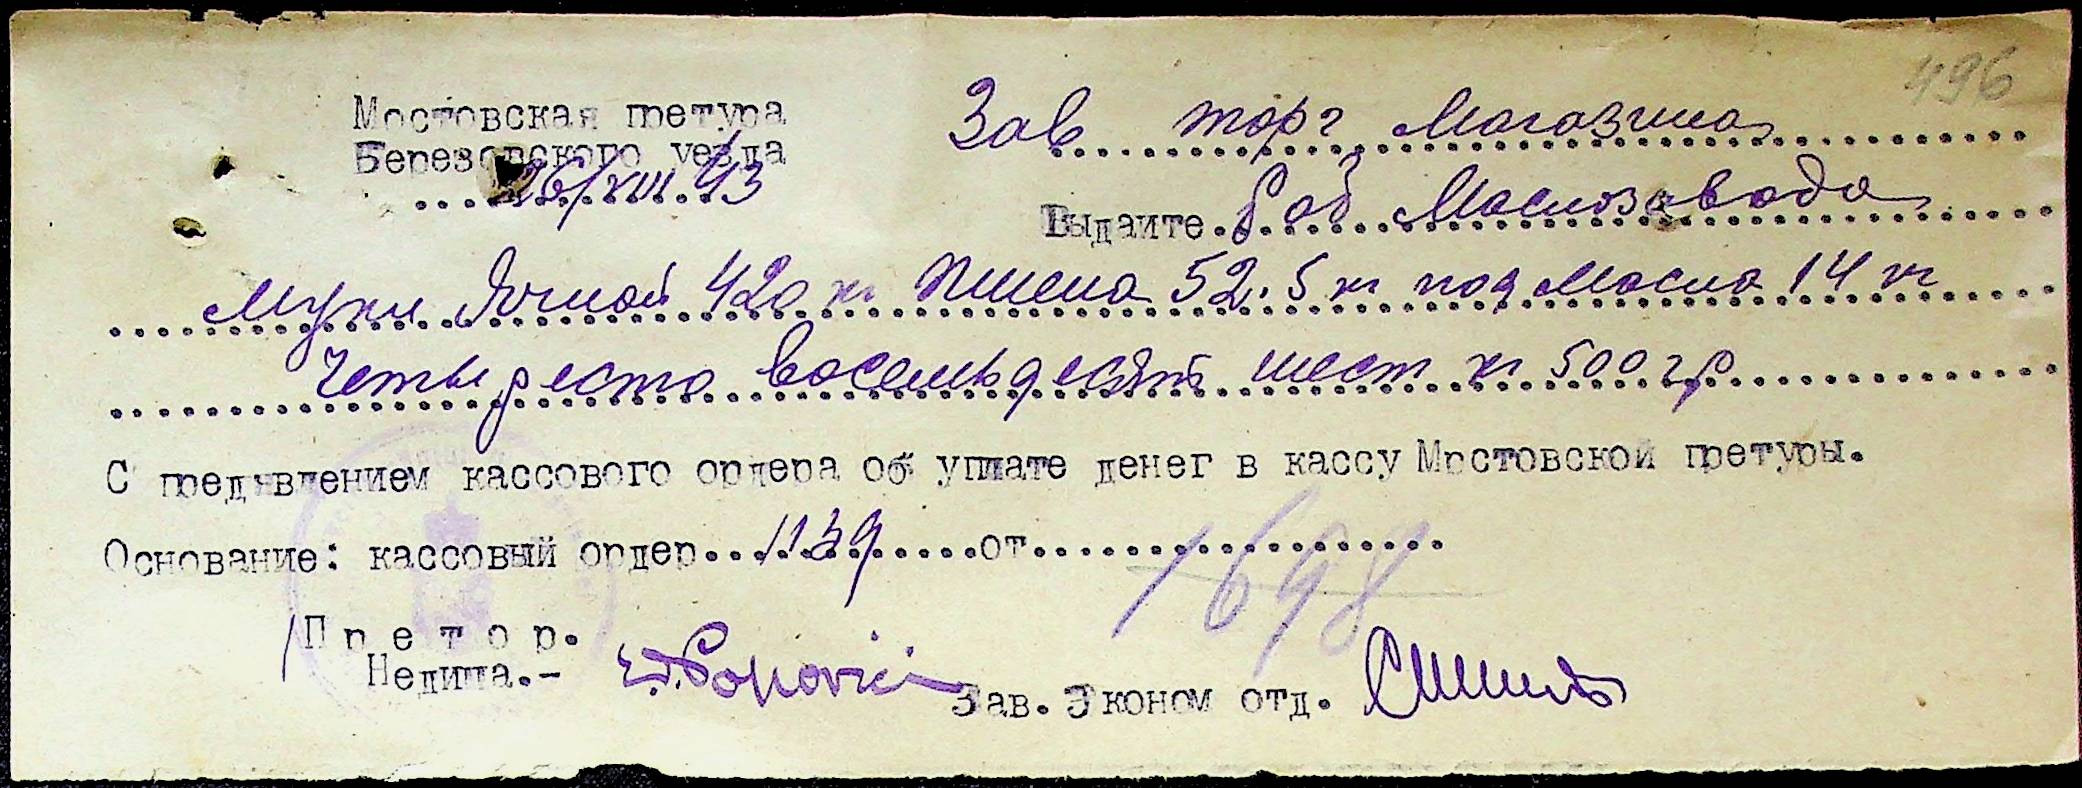 496
Мостовская претура
Березовского уезда
26/XIII.43
Зав торг Магазина
Выдаите раб Маслозавода
Муки Ячной 420 кг Пшена 52.5 кг под Масла 14 кг
Четыреста восемьдесят шест кг 500 гр
С предявлением кассового ордера об уплате денег в кассу Мостовской претуры.
Основание: кассовый ордер 1139 от
1698
Претор.
Недила.-
Popovici
Зав. Эконом отд.